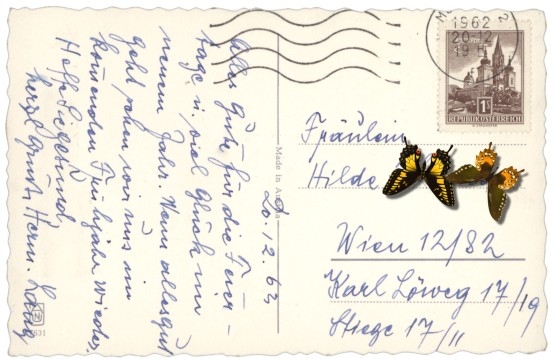 Alles Gute für die Feier-
tage u. viel Glück im
neuen Jahr. Wenn alles gut
geht sehn wir uns im
kommenden Frühjahr wieder.
Herzl. Grüße Herm.
20.12.62
Made in Austria
1962
20.12
19 H
1 S
REPUBLIK ÖSTERREICH
Fräulein
Hilde
Wien 12/82
Karl Löweg 17/19
Stiege 17/11
N